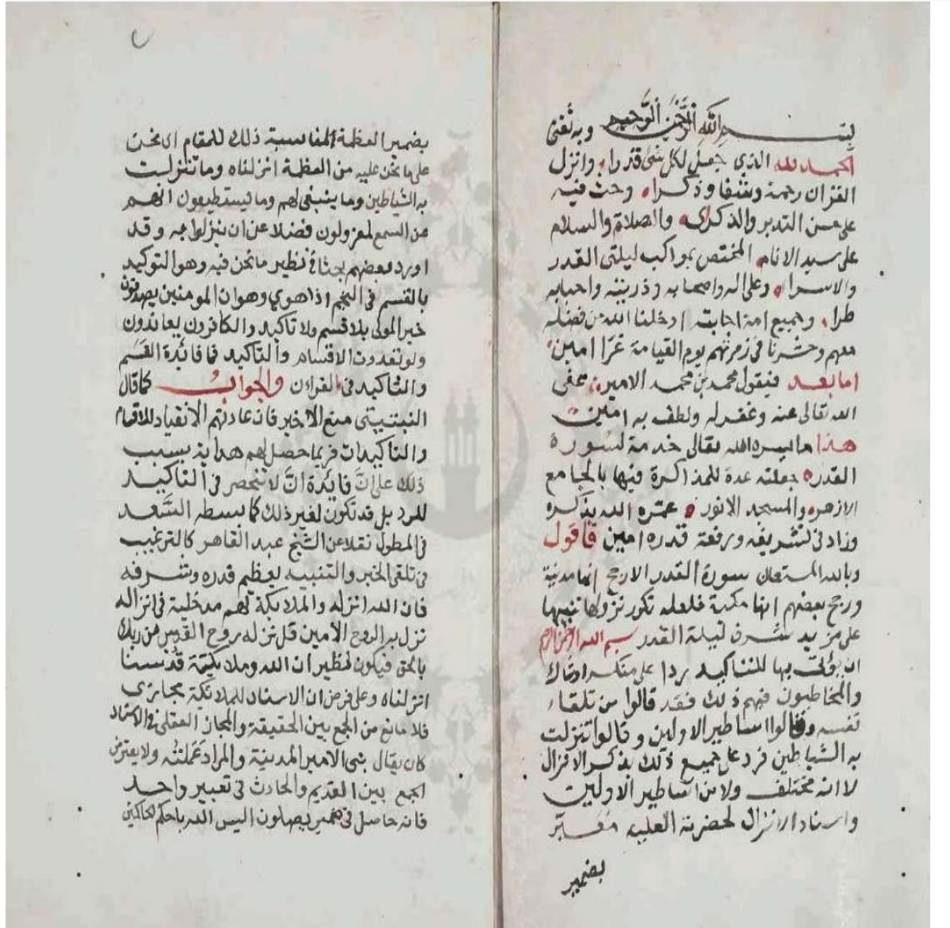 بسم الله الرحمن الرحيم وبه ثقتي
الحمد لله الذي جعل لكل شئ قدرا وانزل
القران رحمة وشفا وذكرا وحث فيه
على حسن التدبر والذكرى والصلاة والسلام
على سيد الانام المختص بمواكب ليلتي القدر
والاسرا وعلى اله واصحابه وذريته واحبابه
طرا وجميع امة اجابته ادخلنا الله من فضله
معهم وحشرنا في زمرتهم يوم القيامة غرا امين
اما بعد فيقول محمد بن محمد الامير عفى
الله تعالى عنه وغفر له ولطف به امين
هذا ما يسره الله تعالى خدمة لسورة
القدر جعلته عدة للمذاكرة فيها بالجامع
الازهر والمسجد الانور عمره الله بذكره
وزاد في تشريفه ورفعة قدره امين فاقول
وبالله المستعان سورة القدر الارجح انها مدنية
ورجح بعضهم انها مكية فلعله تكرر نزولها تنبيها
على مزيد شرف ليلة القدر بسم الله الرحمن الرحيم
ان يؤتى بها للتاكيد ردا على منكر او شاك
والمخاطبون فيهم ذلك فقد قالوا من تلقاء
نفسه وقالوا اساطير الاولين وقالوا تنزلت
به الشياطين فرد على جميع ذلك بذكر الانزال
لا انه مختلف ولا من اساطير الاولين
واسناد الانزال لحضرته العلية معبر
بضمير
بضمير العظمة المناسبة ذلك للمقام اي نحن
على ما نحن عليه من العظمة انزلناه وما تنزلت
به الشياطين وما ينبغي لهم وما يستطيعون انهم
عن السمع لمعزولون فضلا عن ان ينزلوا به وقد
اورد بعضهم بحثا نظير ما نحن فيه وهو التوكيد
بالقسم في النجم اذا هوي وهو ان المومنين يصدقون
خبر المولى بلا قسم ولا تاكيد والكافرون يعاندون
ولو تعددت الاقسام والتاكيد فما فائدة القسم
والتاكيد في القران والجواب كما قال
النبتيتي منع الاخير فان عادتهم الانقياد للاقسام
والتاكيدات فربما حصل لهم هداية بسبب
ذلك على ان فائدة ان لا تنحصر في التاكيد
للرد بل قد تكون لغير ذلك كما بسطه السعد
في المطول نقلا عن الشيخ عبد القاهر كالترغيب
في تلقي الخبر والتنبيه بعظيم قدره وشرفه
فان الله انزله والملايكة لهم مدخلية في انزاله
نزل به الروح الامين قل نزله روح القدس من ربك
بالحق فيكون نظير ان الله وملايكته قد سسنا
انزلناه وعلى فرض ان الاسناد للملائكة مجازي
فلا مانع من الجمع بين الحقيقة والمجاز العقلي في الاسناد
كان يقال بنى الامير المدينة والمراد عملته ولا يعترض
الجمع بين القديم والحادث في تعبير واحد
فانه حاصل في ضمير يصلون اليس الله باحكم الحاكمين